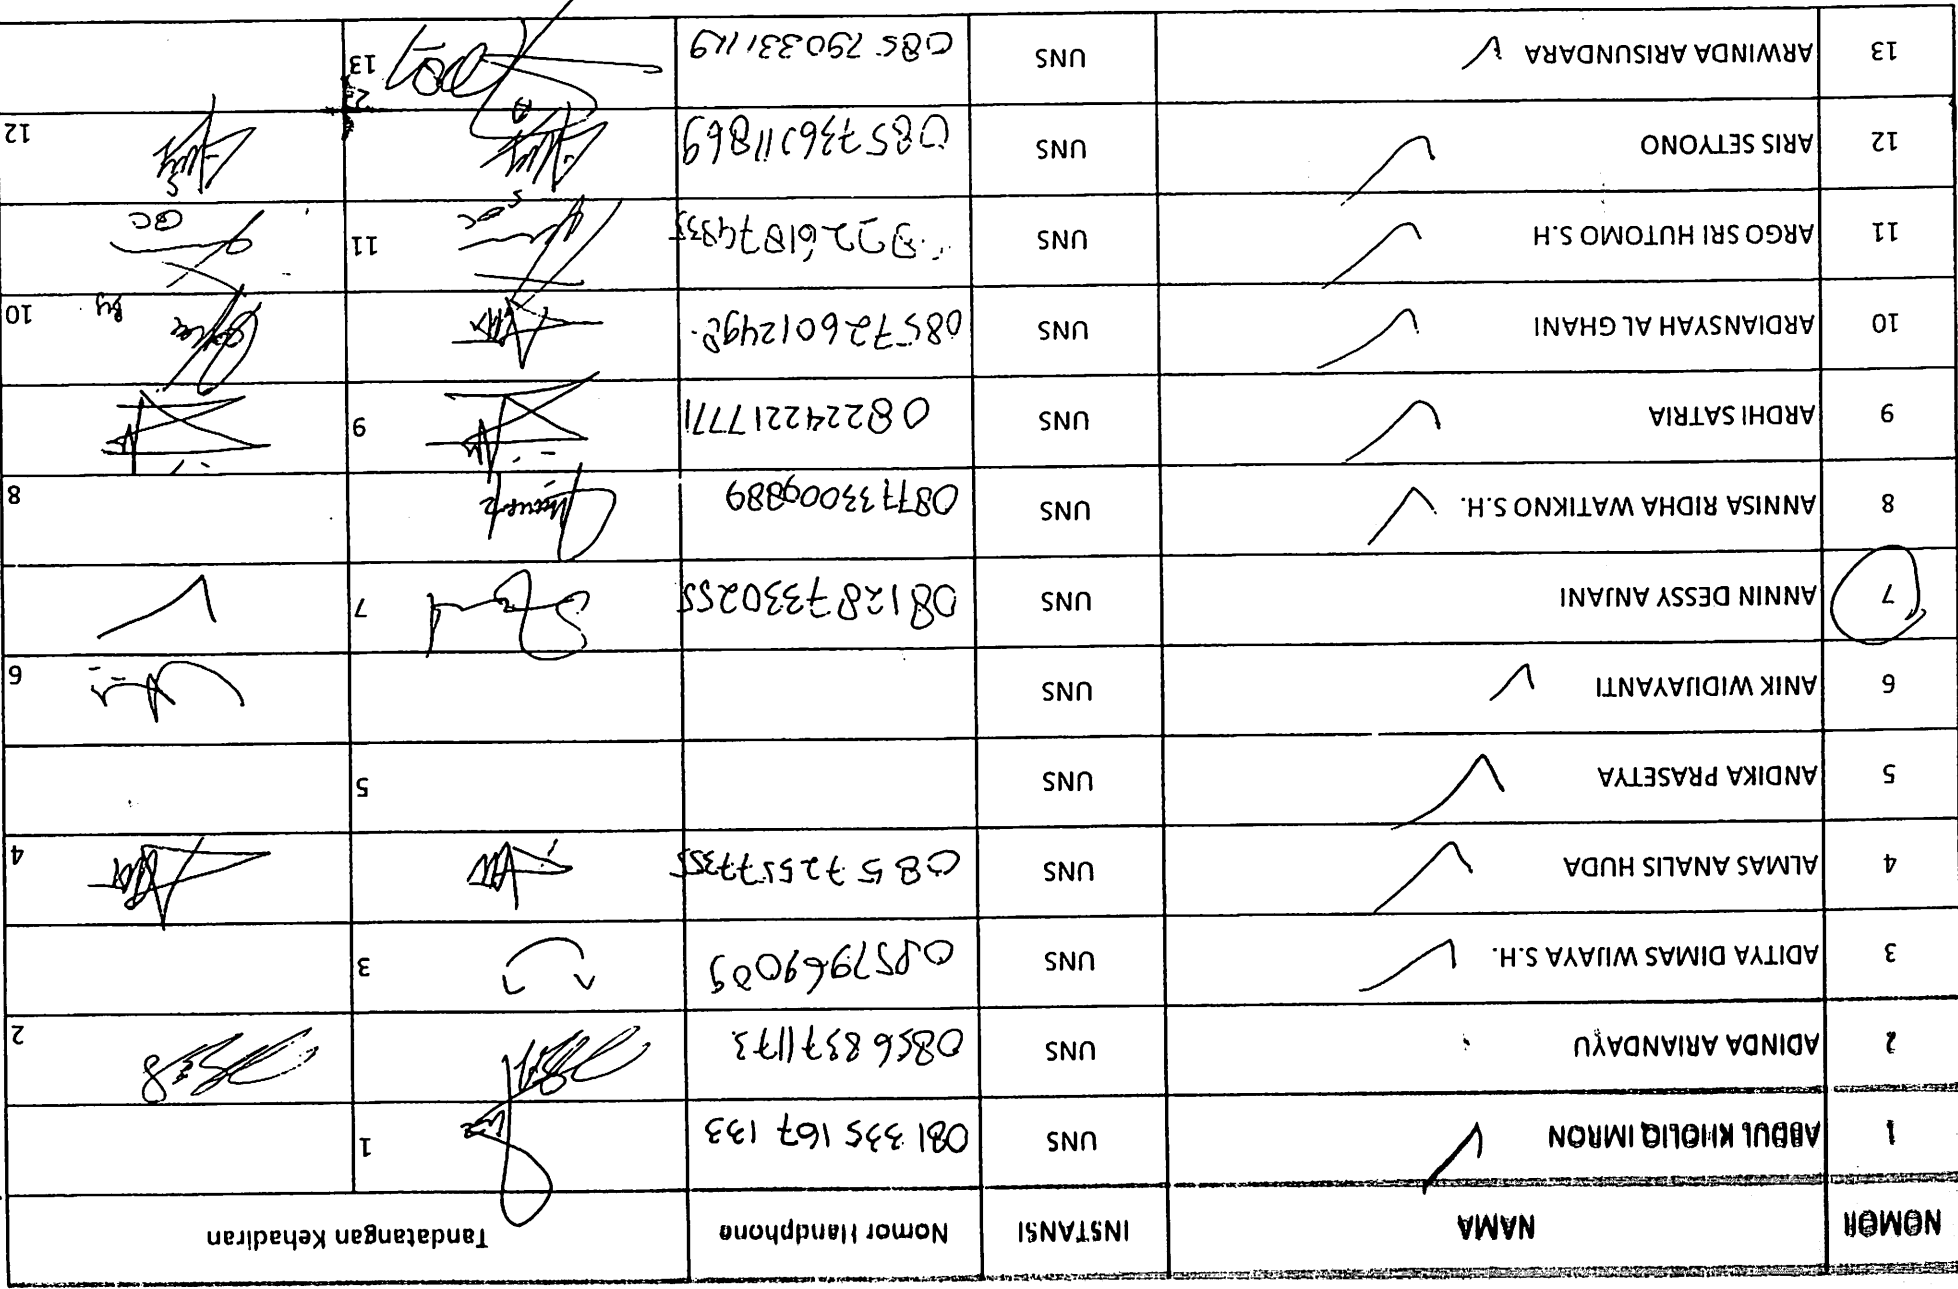 NOMOR NAMA INSTANSI Nomor Handphone Tandatangan Kehadiran
1 ABDUL KHOLIQ IMRON UNS 081 335 167 133 1
2 ADINDA ARIANDAYU UNS 0856 8371173 2
3 ADITYA DIMAS WIJAYA S.H. UNS 3
4 ALMAS ANALIS HUDA UNS 085725577355 4
5 ANDIKA PRASETYA UNS 5
6 ANIK WIDIJAYANTI UNS 6
7 ANNIN DESSY ANJANI UNS 081287330255 7
8 ANNISA RIDHA WATIKNO S.H. UNS 087733009889 8
9 ARDHI SATRIA UNS 082242217771 9
10 ARDIANSYAH AL GHANI UNS 10
11 ARGO SRI HUTOMO S.H UNS 11
12 ARIS SETYONO UNS 085736711869 12
13 ARWINDA ARISUNDARA UNS 13